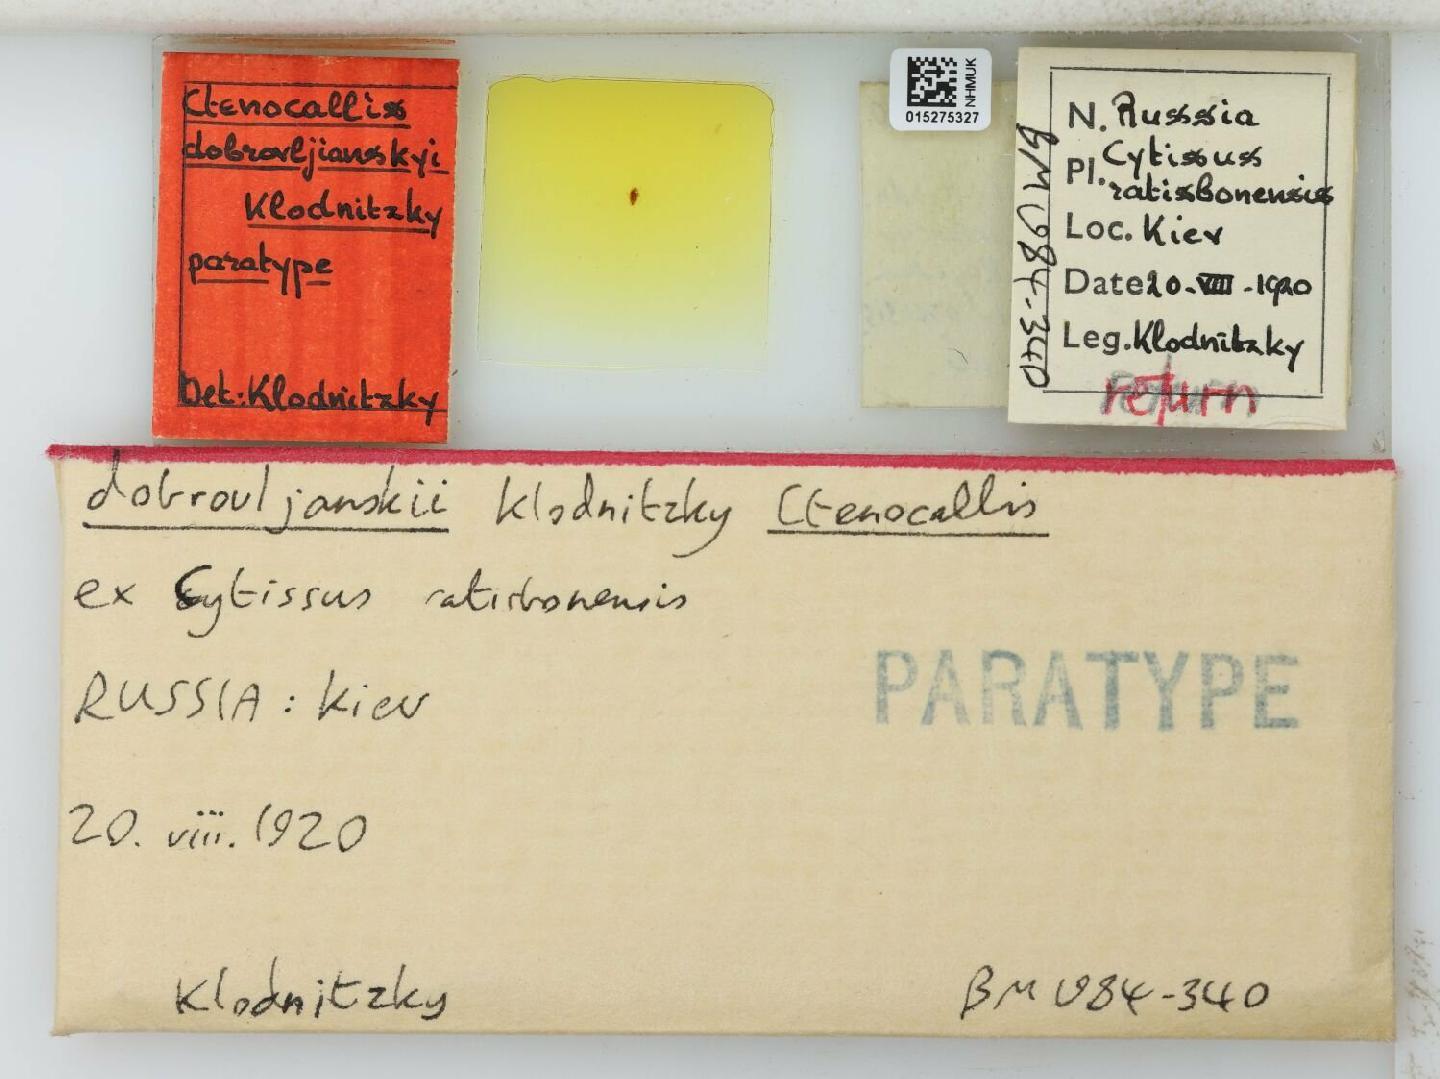 Ctenocallis
dobrovljianskyi
Klodnitzky
paratype
Det: Klodnitzky
NHMUK
015275327
BM 1984-340
N. Russsia
Pl. Cytissus
ratisbonensis
Loc. Kiev
Date 20-VIII-1920
Leg. Klodnitzky
return
dobrovljanskii Klodnitzky Ctenocallis
ex Cytissus ratisbonensis
RUSSIA: Kiev
PARATYPE
20. viii. 1920
Klodnitzky
BM 1984-340